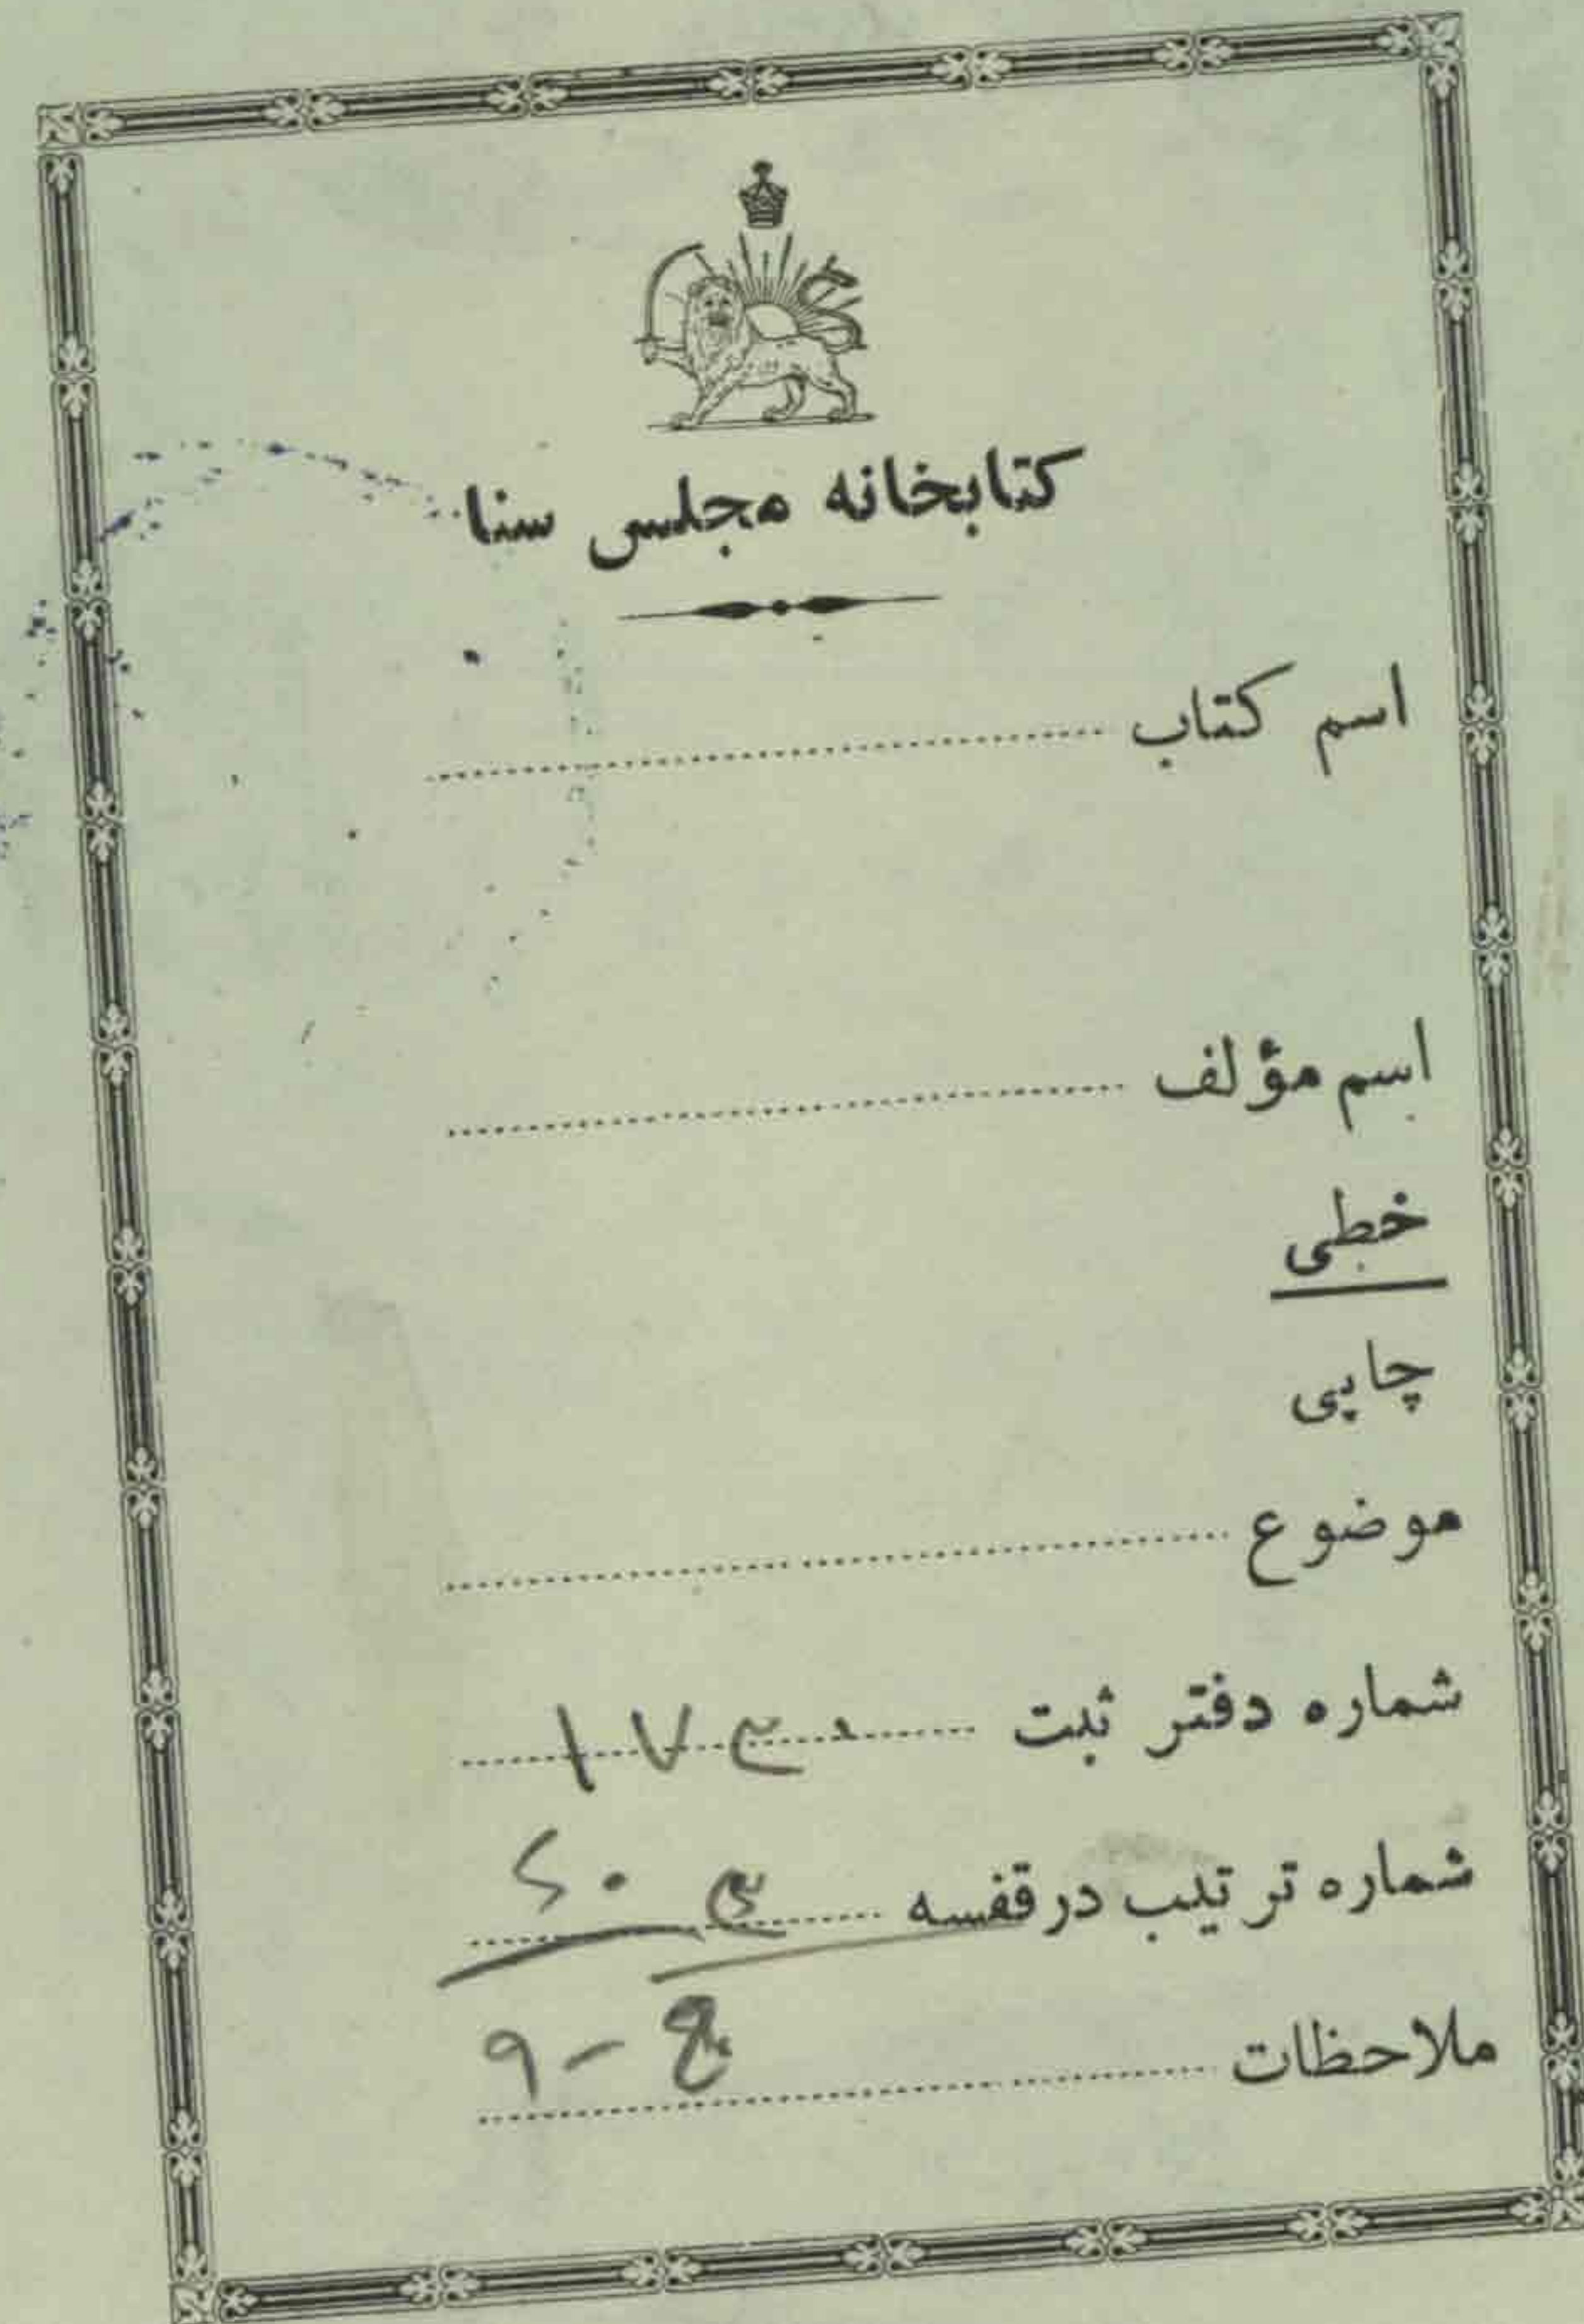 کتابخانه مجلس سنا
اسم کتاب
اسم مؤلف
خطی
چاپی
موضوع
شماره دفتر ثبت ۱۷۳۰
شماره ترتیب در قفسه
ملاحظات